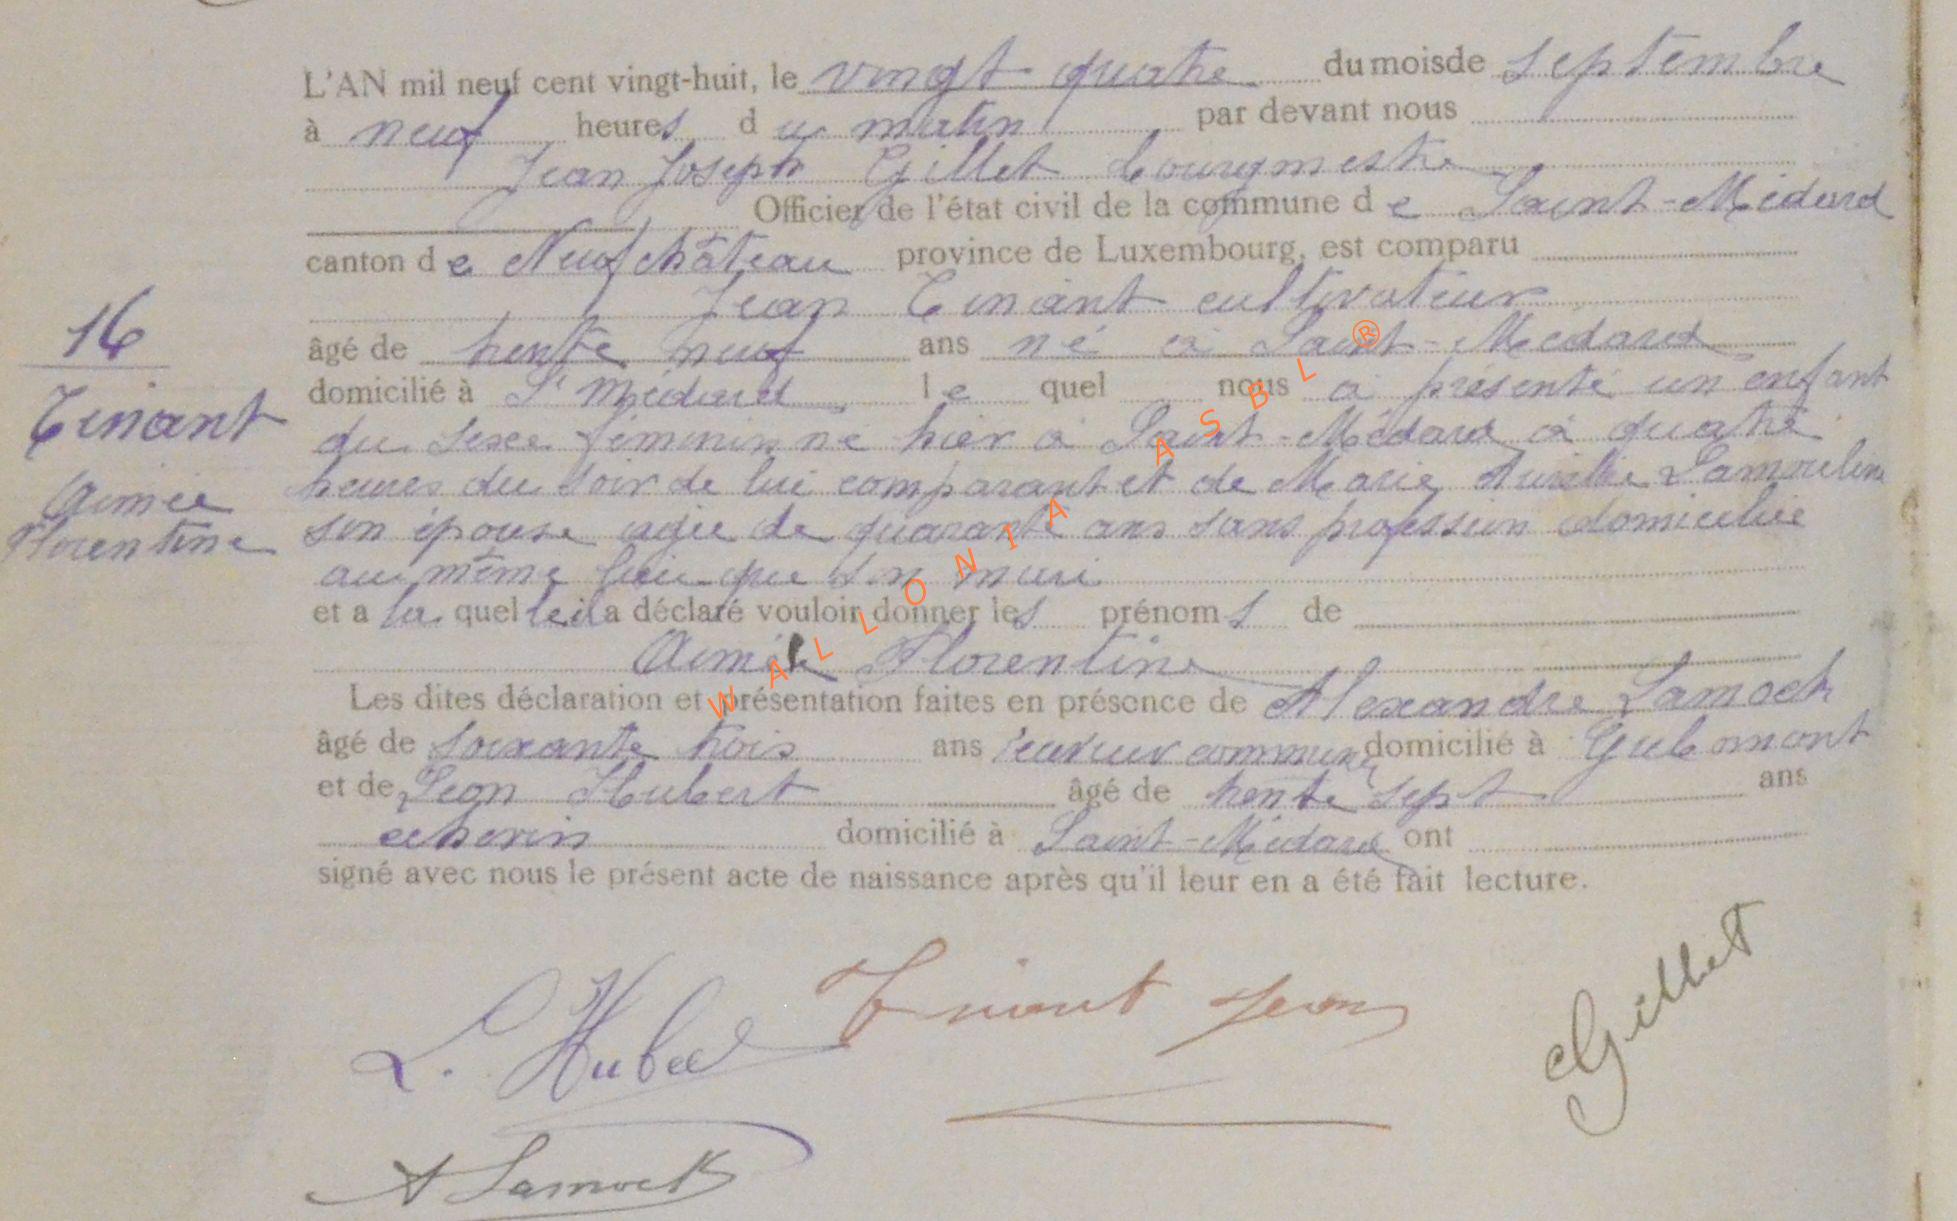 L'AN mil neuf cent vingt-huit, le vingt quatre du mois de septembre
à neuf heures du matin par devant nous
Jean Joseph Gillet bourgmestre
Officier de l'état civil de la commune de Saint-Médard
canton de Neufchâteau province de Luxembourg, est comparu
Jean Tinant cultivateur
âgé de trente neuf ans né à Saint-Médard
domicilié à St Médard, le quel nous a présenté un enfant
du sexe féminin né hier à Saint-Médard à quatre
heures du soir de lui comparant et de Marie Lamouline
son épouse agée de quarante ans sans profession domiciliée
au même lieu que son mari
et a la quelle il a déclaré vouloir donner les prénoms de
Aimée Florentine
Les dites déclaration et présentation faites en présence de Alexandre Lamock
âgé de soixante trois ans receveur communal domicilié à Gribomont
et de Léon Hubert âgé de trente sept ans
échevin domicilié à Saint-Médard ont
signé avec nous le présent acte de naissance après qu'il leur en a été fait lecture.
16
Tinant
Aimée
Florentine
L. Hubert
Tinant Jean
Gillet
A Lamock
WALLONIA ASBL ®